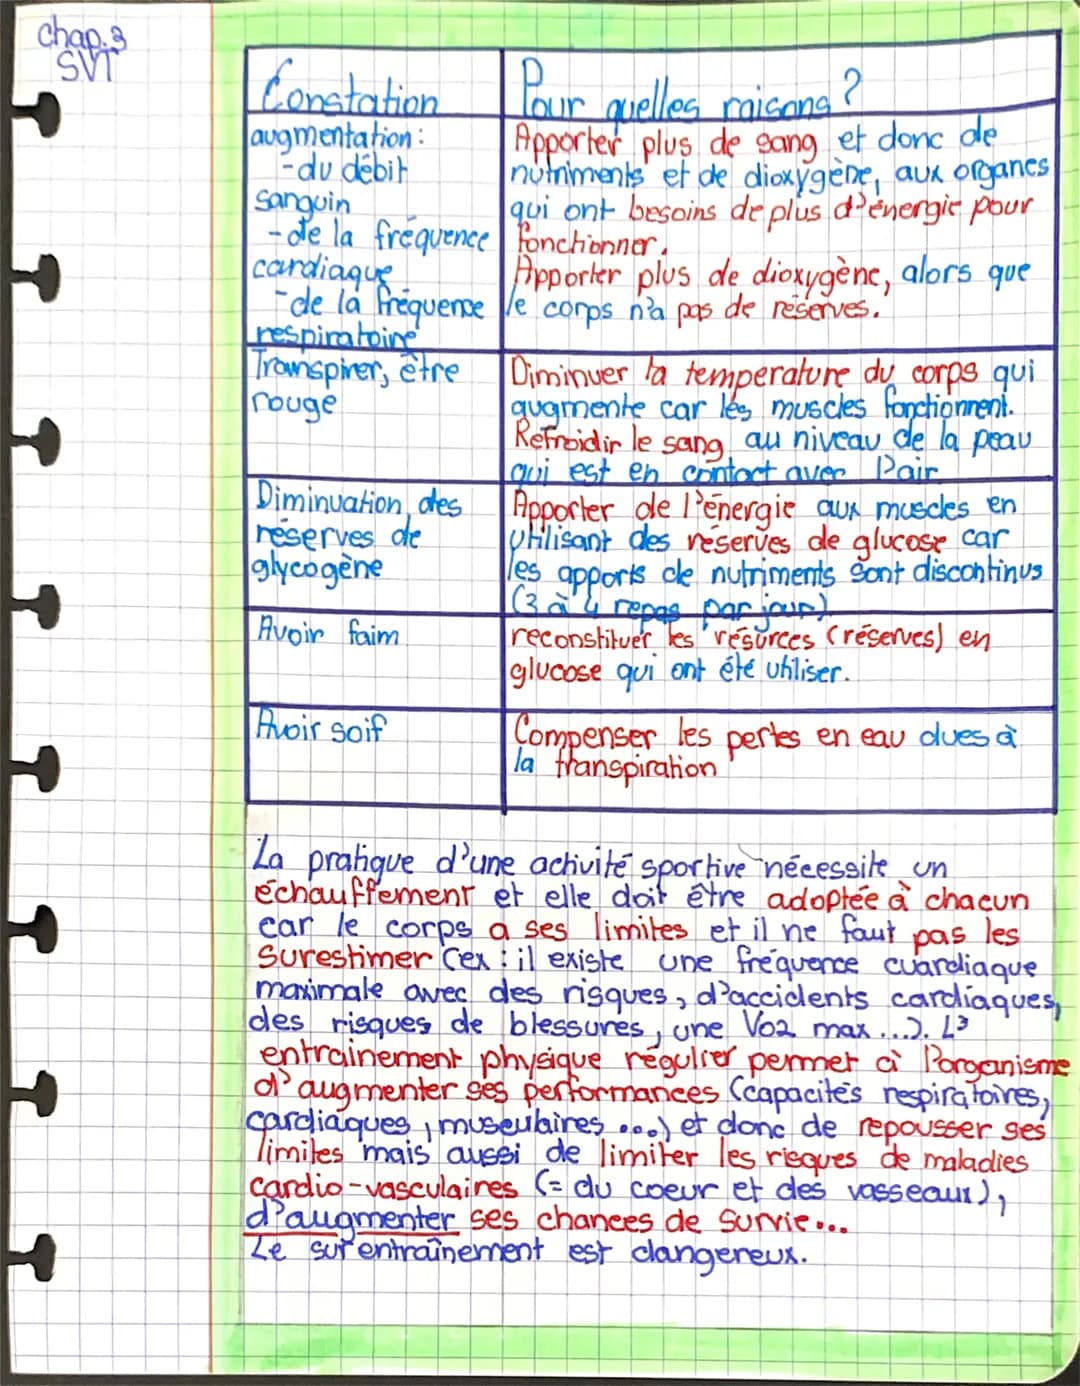 Chap.3
SVT
Constation
Pour quelles raisons ?
augmentation :
- du débit
sanguin
- de la fréquence
cardiaque
- de la fréquence
respiratoire
Apporter plus de sang et donc de
nutriments et de dioxygène, aux organes
qui ont besoins de plus d'énergie pour
fonctionner.
Apporter plus de dioxygène, alors que
le corps n'a pas de réserves.
Transpirer, être
rouge
Diminuer la temperature du corps qui
augmente car les muscles fonctionnent.
Refroidir le sang au niveau de la peau
qui est en contact avec l'air
Diminuation des
réserves de
glycogène
Apporter de l'énergie aux muscles en
utilisant des réserves de glucose car
les apports de nutriments sont discontinus
(3 à 4 repas par jour)
Avoir faim
reconstituer les résurces (réserves) en
glucose qui ont été utiliser.
Avoir soif
Compenser les pertes en eau dues à
la transpiration
La pratique d'une activité sportive nécessite un
échauffement et elle doit être adoptée à chacun
car le corps a ses limites et il ne faut pas les
surestimer (ex : il existe une fréquence cuardiaque
maximale avec des risques, d'accidents cardiaques,
des risques de blessures, une VO2 max ...). L'
entrainement physique régulier permet à l'organisme
d'augmenter ses performances (capacités respiratoires,
cardiaques, musculaires ...) et donc de repousser ses
limites mais aussi de limiter les risques de maladies
cardio-vasculaires (= du coeur et des vasseaux),
d'augmenter ses chances de survie...
Le surentraînement est dangereux.